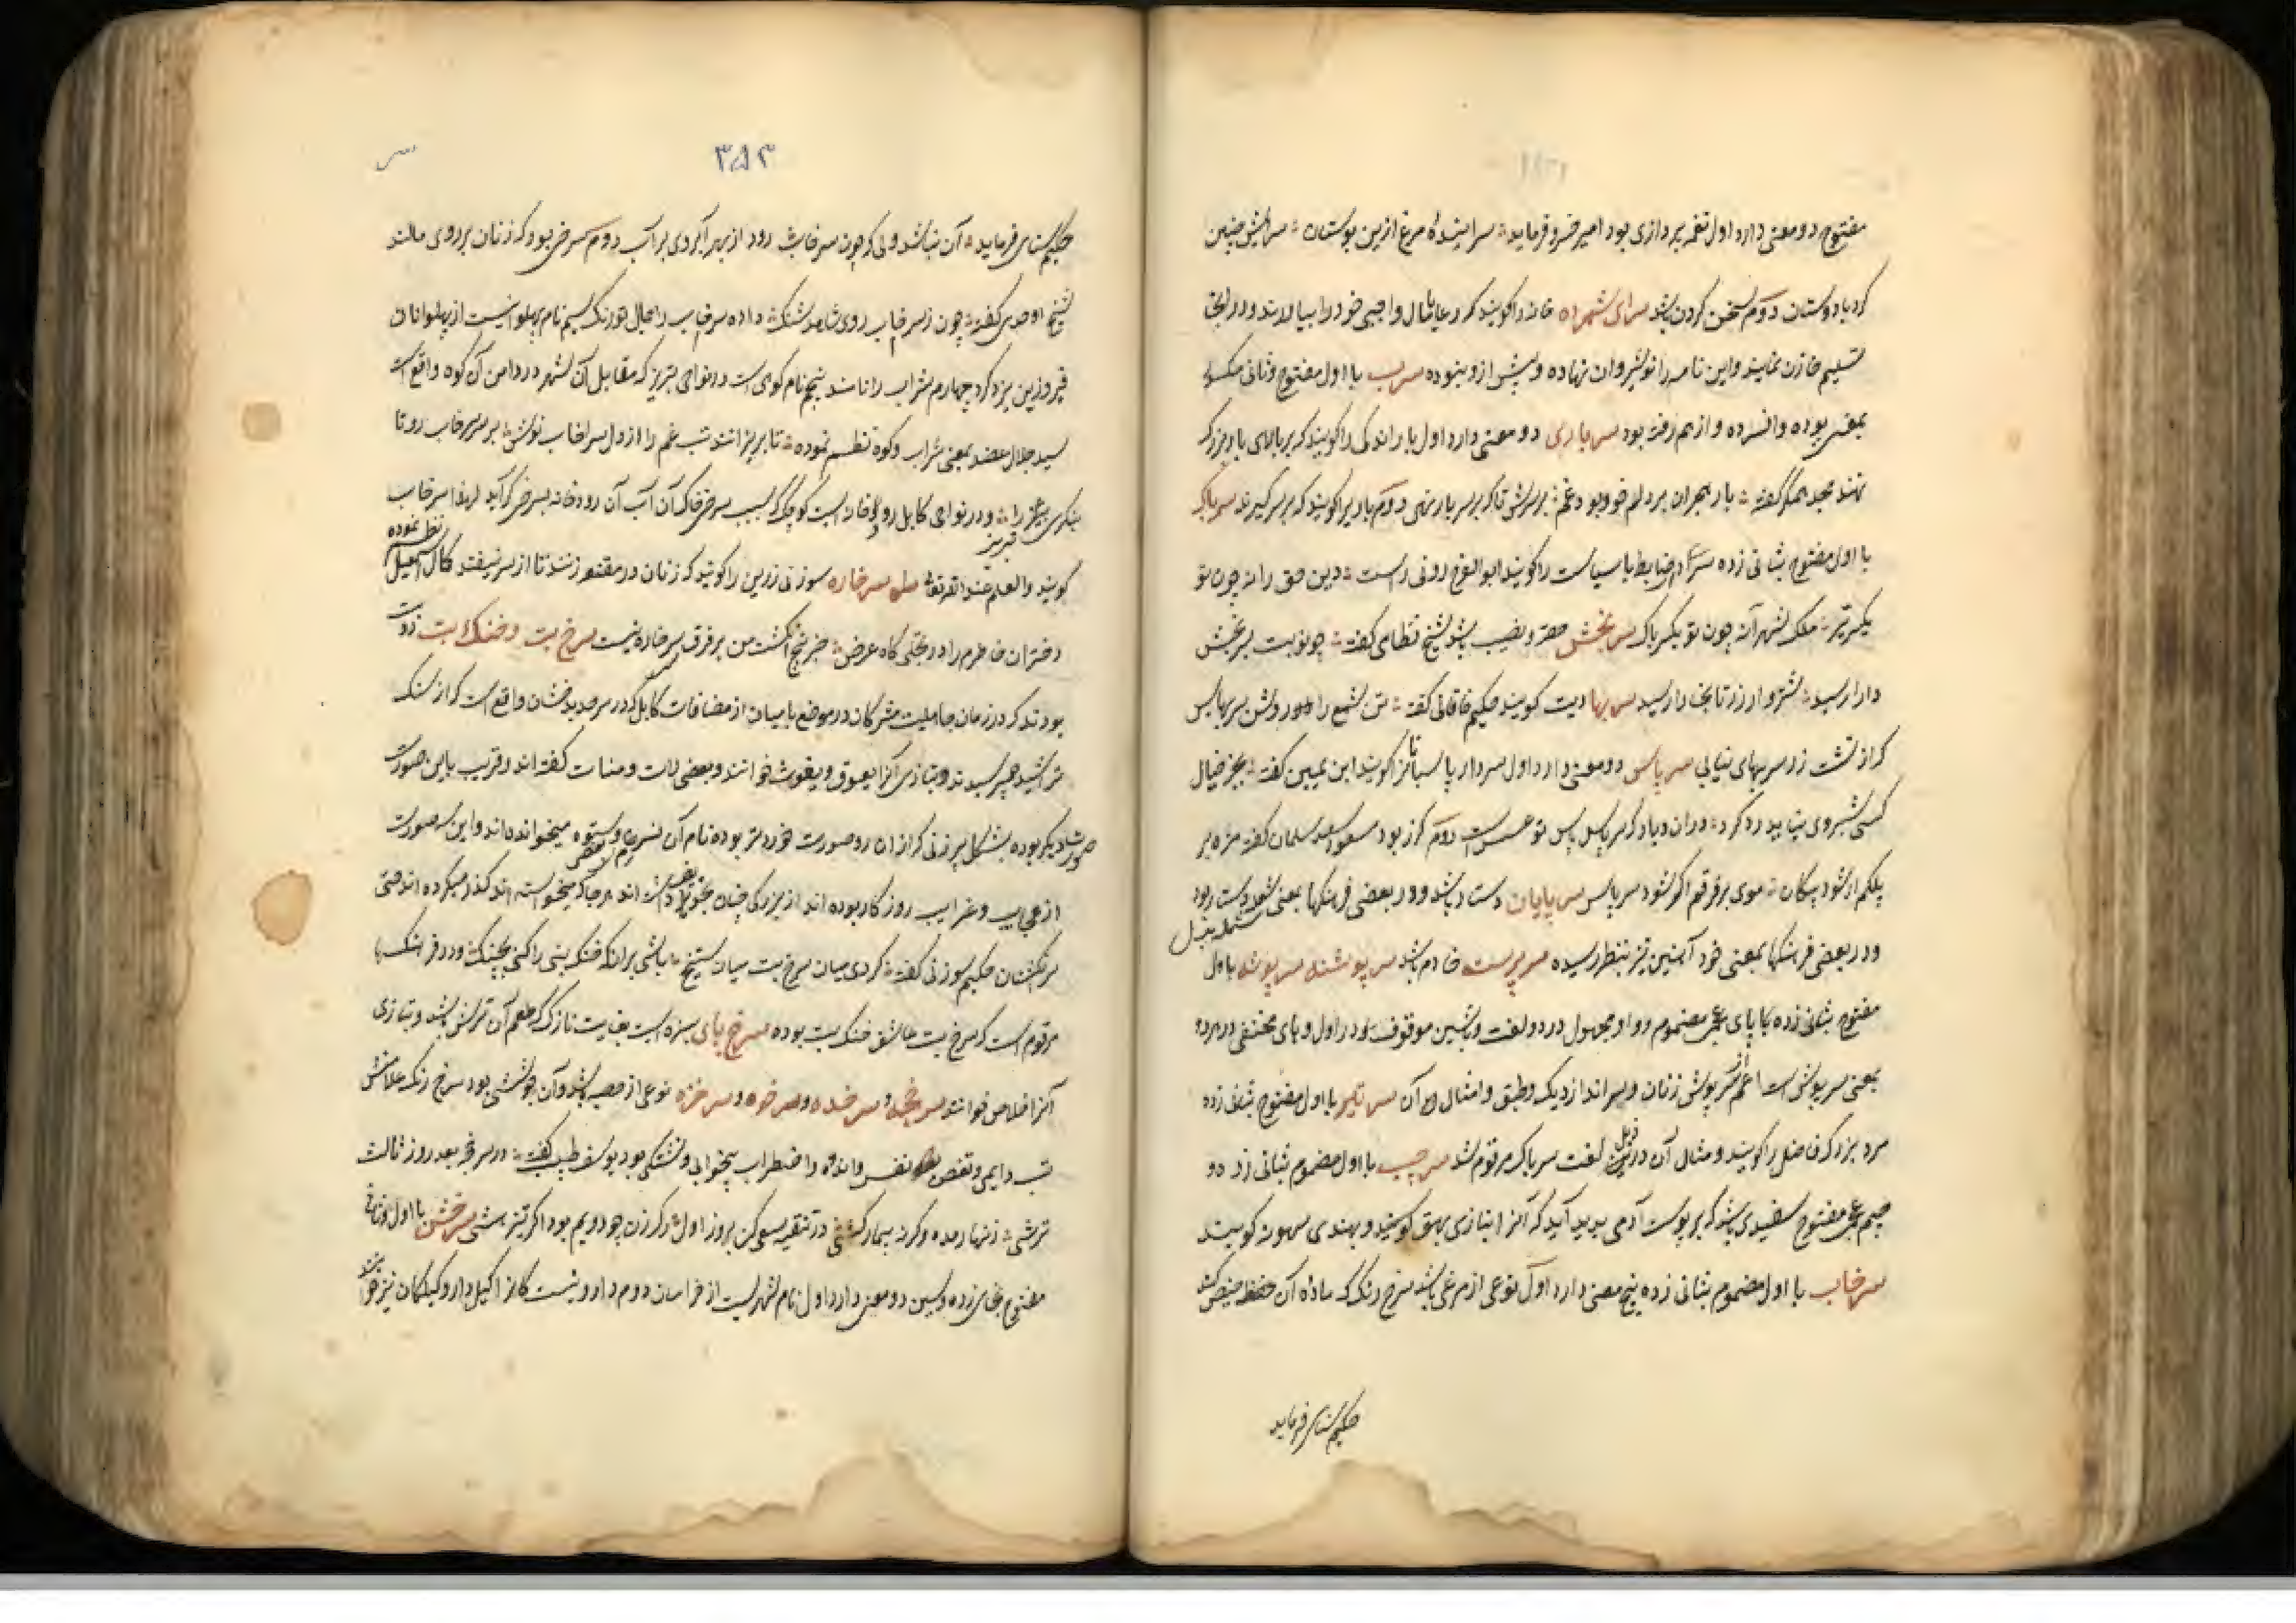 مفتوح دو معنی دارد اول نغمه پردازی بود امیر خسرو فرماید سراینده مرغ ازین بوستان سرایش چنین
کرد با دوستان دوم سخن کردن باشد سرای شمرده خانه را گویند که رعایا مال واجبی خود را بیاورند و در آنجا
تسلیم خازن نمایند و این نامه را نوشیروان نهاده و پیش ازو نبوده سرب با اول مفتوح و ثانی مکسور
بمعنی بوده و افسرده و از هم رفته بود سرباری دو معنی دارد اول بار اندکی را گویند که بر بالای بار بزرگ
نهند مجد همگر گفته بار هجران بر دلم خود بود و غم بر سرش تا که بر سر بار نهی دوم باریرا گویند که بر سر گیرند سرپاک
با اول مفتوح بثانی زده سردار ضابط با سیاست را گویند ابوالفرج رونی راست دین حق را نه چون تو
یکسر تیر ملک شه را نه چون تو یکسرپاک سربخش حصه و نصیب باشد شیخ نظامی گفته چو نوبت بسربخش
دارا رسید شتروار زر تا بخارا رسید سربها دیت گویند حکیم خاقانی گفته تن شمع را ده روشن سربها بس
که از تشت زر سربهای نیابی سرپاس دو معنی دارد اول سردار پاسبانان گویند ابن یمین گفته بجز خیال
کسی شبروی نیابد ره کرد دران دیار که سرپاس پاس تو عسس است دوم گرز بود مسعود سعد سلمان گفته مژه بر
پلکم ار شود پیکان موی بر فرقم اگر شود سرپاس سرپایان دستار باشد و در بعضی فرهنگها بمعنی شمله دستار بود
و در بعضی فرهنگها بمعنی خود آهنین نیز بنظر رسیده سرپرست خادم باشد سرپوشنه سرپوشه با اول
مفتوح بثانی زده با بای عجمی مضموم و واو مجهول در دو لغت و بشین موقوف در اول و های مختفی در هر دو
بمعنی سرپوش است اعم از سرپوش زنان و سرانداز دیگ و طبق و امثال آن سرتیر با اول مفتوح بثانی زده
مرد بزرگ فاضل را گویند و مثال آن در ذیل لغت سرپاک مرقوم شد سرچپ با اول مضموم بثانی زده و
جیم عجمی مفتوح سفیدی باشد که بر پوست آدمی پدید آید که آنرا بتازی بهق گویند و بهندی سهون گویند
سرخاب با اول مضموم بثانی زده پنج معنی دارد اول نوعی از مرغی باشد سرخ رنگ که ماده آن حفظ حیض کند
حکیم سنائی فرماید
۳۸۳
حکیم سنائی فرماید آن نباشد ولی که چون سرخاب رود از بهر آبروی بر آب دوم سرخی بود که زنان بر روی مالند
شیخ اوحدی گفته چون ز سرخاب روی شاهد شنگ داده سرخاب را جمال دو رنگ سیم نام پهلوانیست از پهلوانان
فیروز بن یزدگرد چهارم شراب را نامند پنجم نام کوهی است در نواحی تبریز که مقابل آن شهر در دامن آن کوه واقع است
سید جلال عضد بمعنی شراب و کوه نظم نموده تا بریزانند تب غم را از دل سرخاب نوش بر سر سرخاب رو تا
بنگری تبریز را و در نواحی کابل رودخانه ایست کوچک که بسبب سرخی خاک آن آب آن رودخانه بسرخی گراید لهذا سرخاب
گویند والعلم عند الله تعالی سرخاره سوزنی زرین را گویند که زنان در مقنعه زنند تا از سر نیفتد کمال اسمعیل نظم نموده
دختران خاطرم را در تجلی گاه عرض جز پنج انگشت من بر فرق سرخاره نیست سرخ بت و خنگ بت دو بت
بودند که در زمان جاهلیت مشرکان در موضع بامیان از مضافات کابل که در سرحد بدخشان واقع است که از سنگ
تراشیده میپرستیدند و بتازی آنرا یعوق و یغوث خوانند و بعضی لات و منات گفته اند و قریب باین صورت
صورت دیگر بوده بشکل پیرزنی که ازان دو صورت خوردتر بوده نام آن نسرم بعضی و ستوه میخوانده اند و این سه صورت
از عجایب و غرایب روزگار بوده اند از بزرگی چنان مجوف داشته اند هر جا که میخواسته اند گذر میکرده اند حتی
سر انگشتان حکیم سوزنی گفته کردی میان سرخ بت میان ستیخ باشی برانکه خنگ بتی را کنی بچنگ و در فرهنگها
مرقوم است که سرخ بت عاشق خنگ بت بوده سرخ پای سبزه ایست بغایت نازک که طعم آن ترش باشد و بتازی
آنرا خلاص خوانند سرخجه و سرخده و سرخژه و سرخزه نوعی از حصبه باشد و آن جوششی بود سرخ رنگ علامتش
تب دایمی و تغص نفس و اندوه و اضطراب بیخوابی و تشنگی بود یوسف طبیب گفته در سرخجه بعد روز ثالث
ترشی زنهار مده و گر نه بیمار کشی در تنقیه سعی کن بروز اول در کردن چو دویم بود اگر نیز هشی سرخس با اول و ثانی
مفتوح بخای زده و سین دو معنی دارد اول نام شهریست از خراسان دوم داروئیست که آنرا اکیل دارو کیلکان نیز خوانند